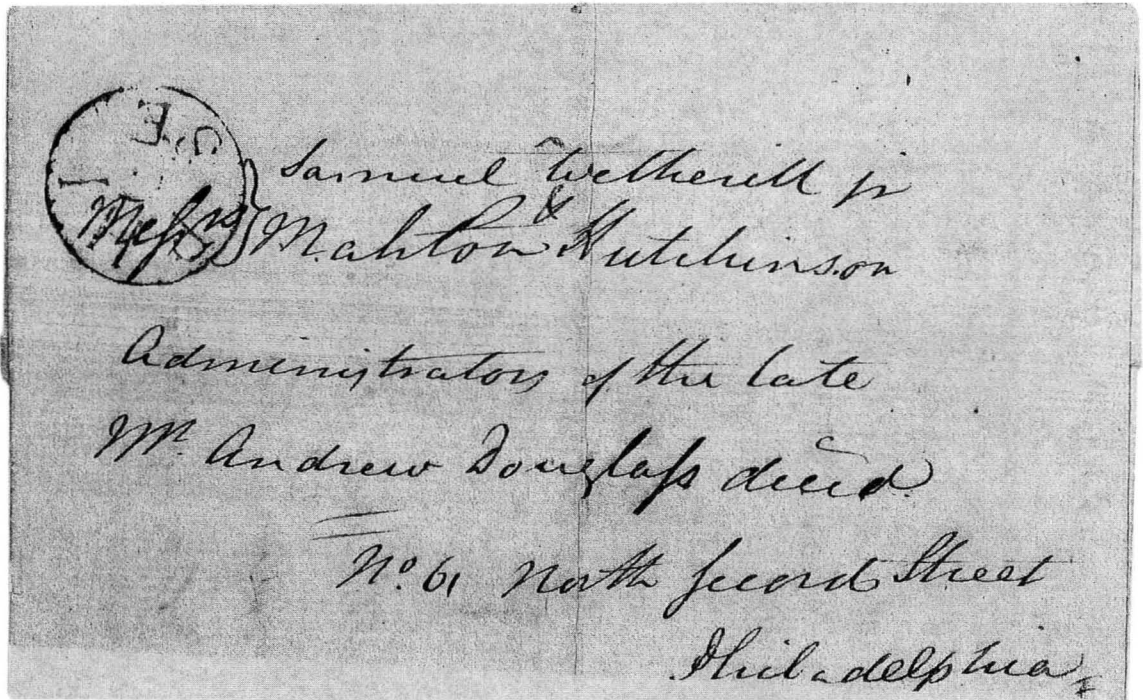 SE
Samuel Wetherill jr
Messrs } &
Mahlon Hutchinson
Administrators of the late
Mr. Andrew Douglass dec'd.
No. 61 North Second Street
Philadelphia